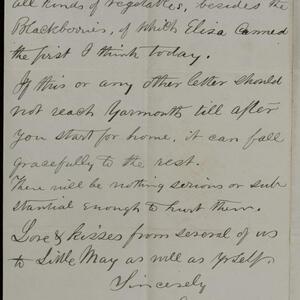 all kinds of vegetables, besides the
Blackberries, of which Eliza canned
the first I think today.
If this or any other letter should
not reach Yarmouth till after
you start for home, it can fall
gracefully to the rest.
There will be nothing serious or sub
stantial enough to hurt them.
Love & kisses from several of us
to Little May as well as yrself.
Sincerely